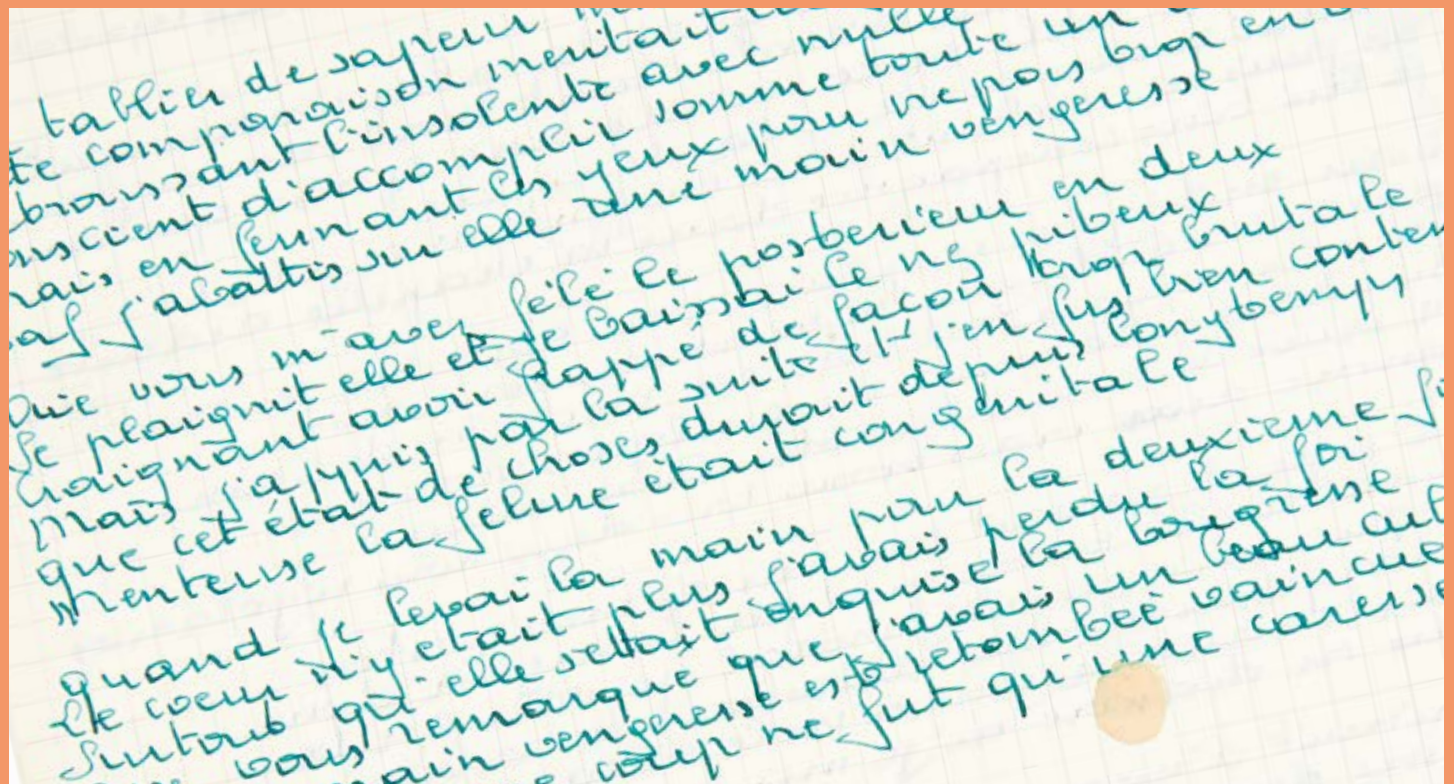 tablier de sapeur
te comparaison méritait
broussant l'insolente avec nulle
onscient d'accomplir somme toute un
mais en fermant les yeux pour ne pas trop en
j'abattis sur elle une main vengeresse
Ouïe vous m'avez fêlé le postérieur en deux
Se plaignit elle et je baissai le nez piteux
Craignant avoir frappé de façon trop brutale
Mais j'appris par la suite et j'en fus bien conten
que cet état de choses durait depuis longtemps
Menteuse la fêlure était congénitale
quand je levai la main pour la deuxieme
Le coeur n'y etait plus j'avais perdu la foi
Surtout qu'elle s'etait enquise la bougresse
vous remarqué que j'avais un beau cul
main vengeresse est retombée vaincue
coup ne fut qu'une caresse